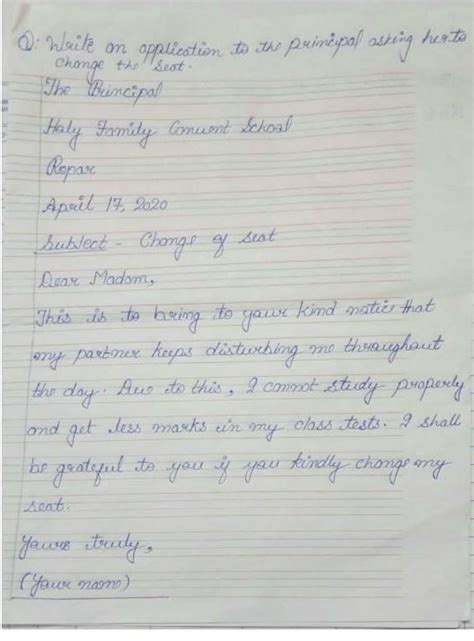 Q. Write an application to the principal asking her to
change the seat.
The Principal
Holy Family Convent School
Ropar
April 17, 2020
Subject - Change of seat
Dear Madam,
This is to bring to your kind notice that
my partner keeps disturbing me throughout
the day. Due to this, I cannot study properly
and get less marks in my class tests. I shall
be grateful to you if you kindly change my
seat.
Yours truly,
(Your name)